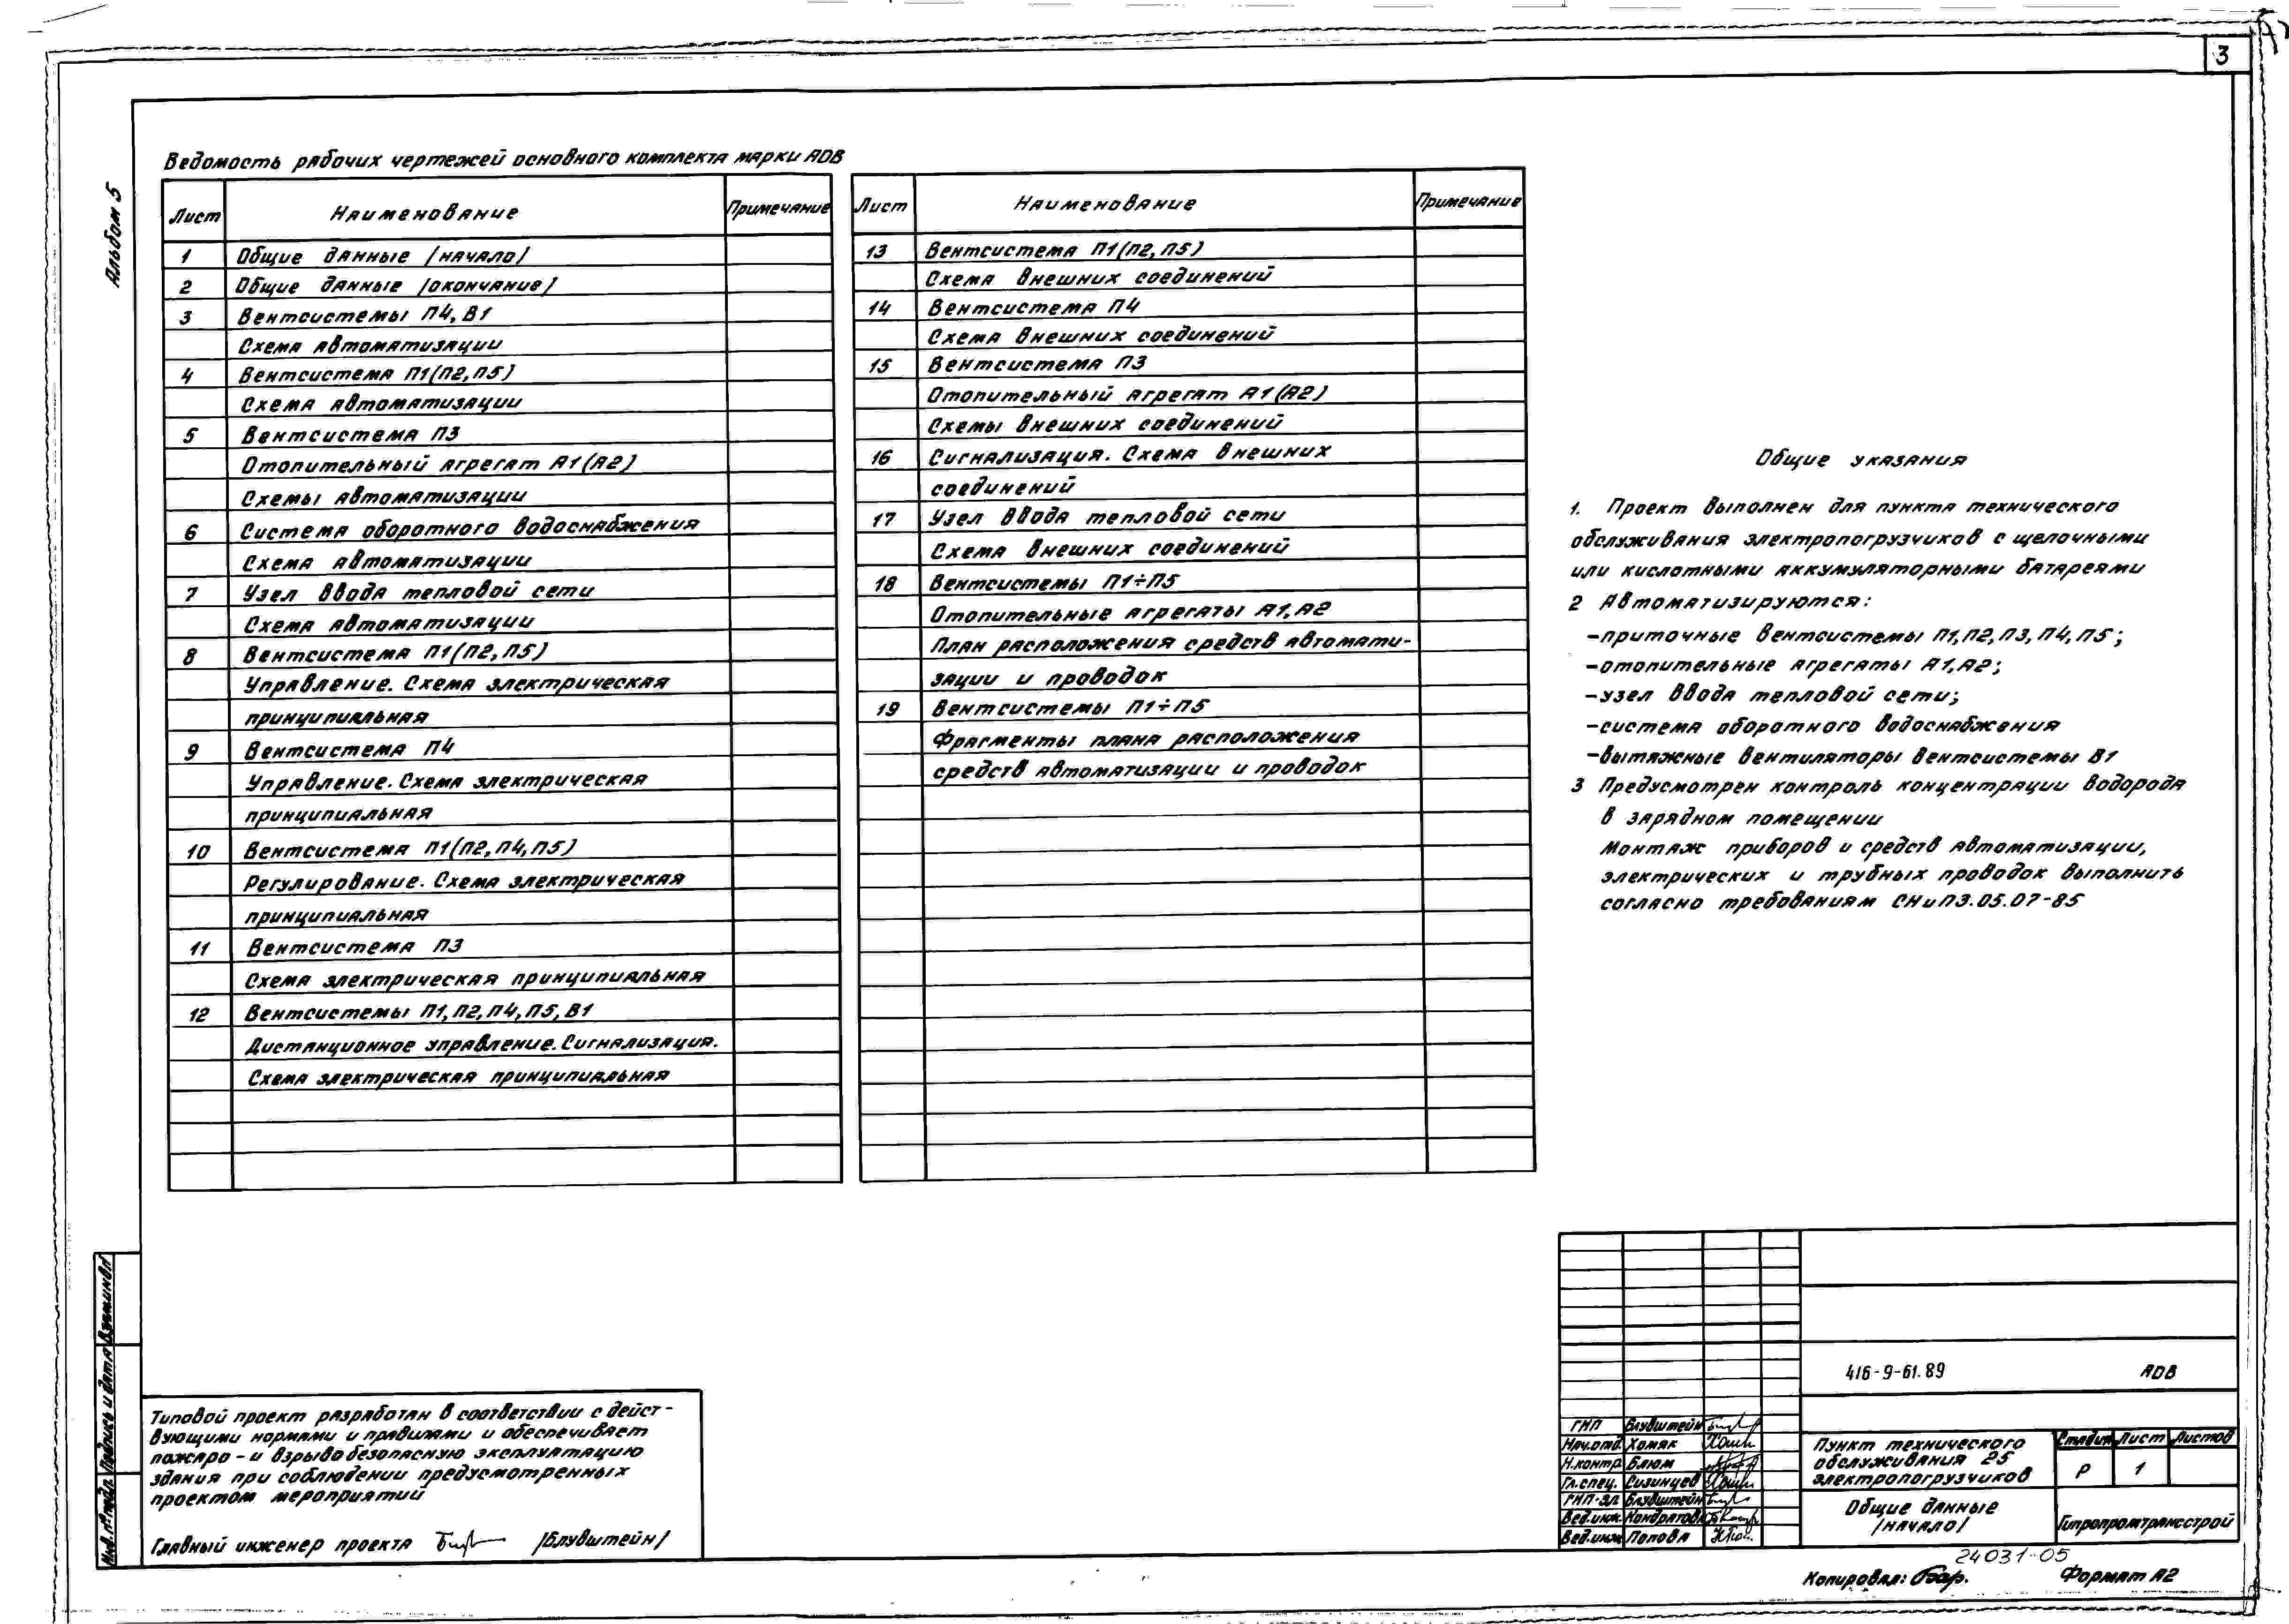 3
Альбом 5
Ведомость рабочих чертежей основного комплекта марки АОВ
Лист Наименование Примечание
1 Общие данные /начало/
2 Общие данные /окончание/
3 Вентсистемы П4, В1
Схема автоматизации
4 Вентсистема П1(П2, П5)
Схема автоматизации
5 Вентсистема П3
Отопительный агрегат А1(А2)
Схемы автоматизации
6 Система оборотного водоснабжения
Схема автоматизации
7 Узел ввода тепловой сети
Схема автоматизации
8 Вентсистема П1(П2, П5)
Управление. Схема электрическая
принципиальная
9 Вентсистема П4
Управление. Схема электрическая
принципиальная
10 Вентсистема П1(П2, П4, П5)
Регулирование. Схема электрическая
принципиальная
11 Вентсистема П3
Схема электрическая принципиальная
12 Вентсистемы П1, П2, П4, П5, В1
Дистанционное управление. Сигнализация.
Схема электрическая принципиальная
Лист Наименование Примечание
13 Вентсистема П1(П2, П5)
Схема внешних соединений
14 Вентсистема П4
Схема внешних соединений
15 Вентсистема П3
Отопительный агрегат А1(А2)
Схемы внешних соединений
16 Сигнализация. Схема внешних
соединений
17 Узел ввода тепловой сети
Схема внешних соединений
18 Вентсистемы П1÷П5
Отопительные агрегаты А1, А2
План расположения средств автомати-
зации и проводок
19 Вентсистемы П1÷П5
Фрагменты плана расположения
средств автоматизации и проводок
Общие указания
1. Проект выполнен для пункта технического
обслуживания электропогрузчиков с щелочными
или кислотными аккумуляторными батареями
2 Автоматизируются:
-приточные вентсистемы П1, П2, П3, П4, П5;
-отопительные агрегаты А1, А2;
-узел ввода тепловой сети;
-система оборотного водоснабжения
-вытяжные вентиляторы вентсистемы В1
3 Предусмотрен контроль концентрации водорода
в зарядном помещении
Монтаж приборов и средств автоматизации,
электрических и трубных проводок выполнить
согласно требованиям СНиП3.05.07-85
Типовой проект разработан в соответствии с дейст-
вующими нормами и правилами и обеспечивает
пожаро-и взрывобезопасную эксплуатацию
здания при соблюдении предусмотренных
проектом мероприятий
Главный инженер проекта /Блувштейн/
Инв. № подл. Подпись и дата Взам инв №
416-9-61.89 АОВ
ГИП Блувштейн
Нач.отд. Хомяк
Н.контр. Блюм
Гл.спец. Сизинцев
ГИП-эл Блувштейн
Вед.инж. Кондратова
Вед.инж Попова
Пункт технического
обслуживания 25
электропогрузчиков
Стадия Лист Листов
Р 1
Общие данные
/начало/
Гипропромтрансстрой
24031-05
Копировал: Формат А2